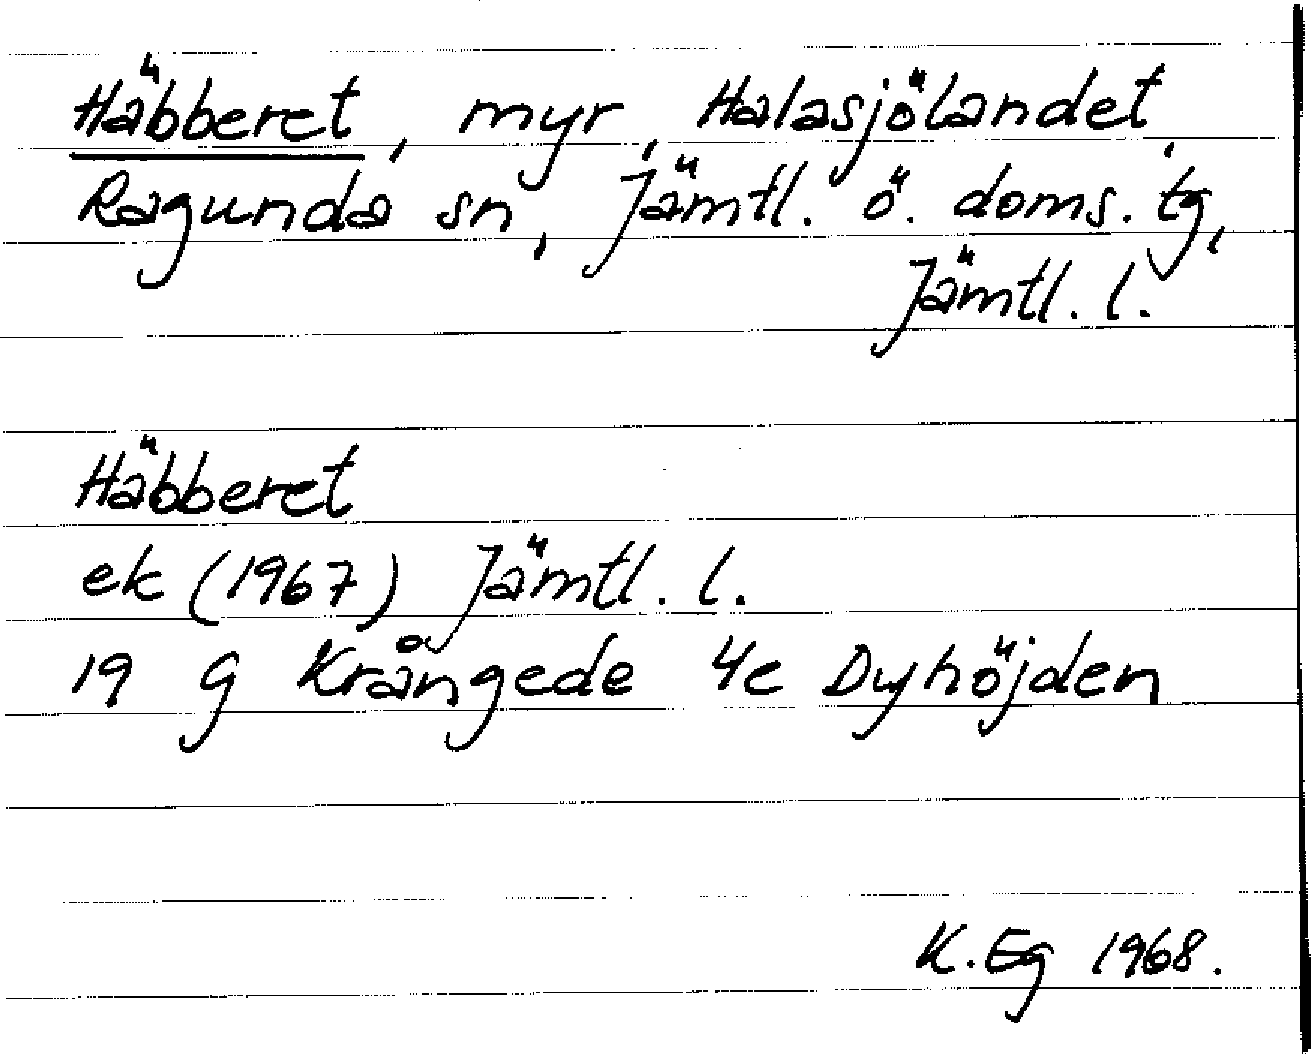 Häbberet, myr, Halasjölandet,
Ragunda sn, Jämtl. ö. doms. tg,
Jämtl. l.
Häbberet
ek (1967) Jämtl. l.
19 g Krångede 4e Dyhöjden
K. Eg 1968.